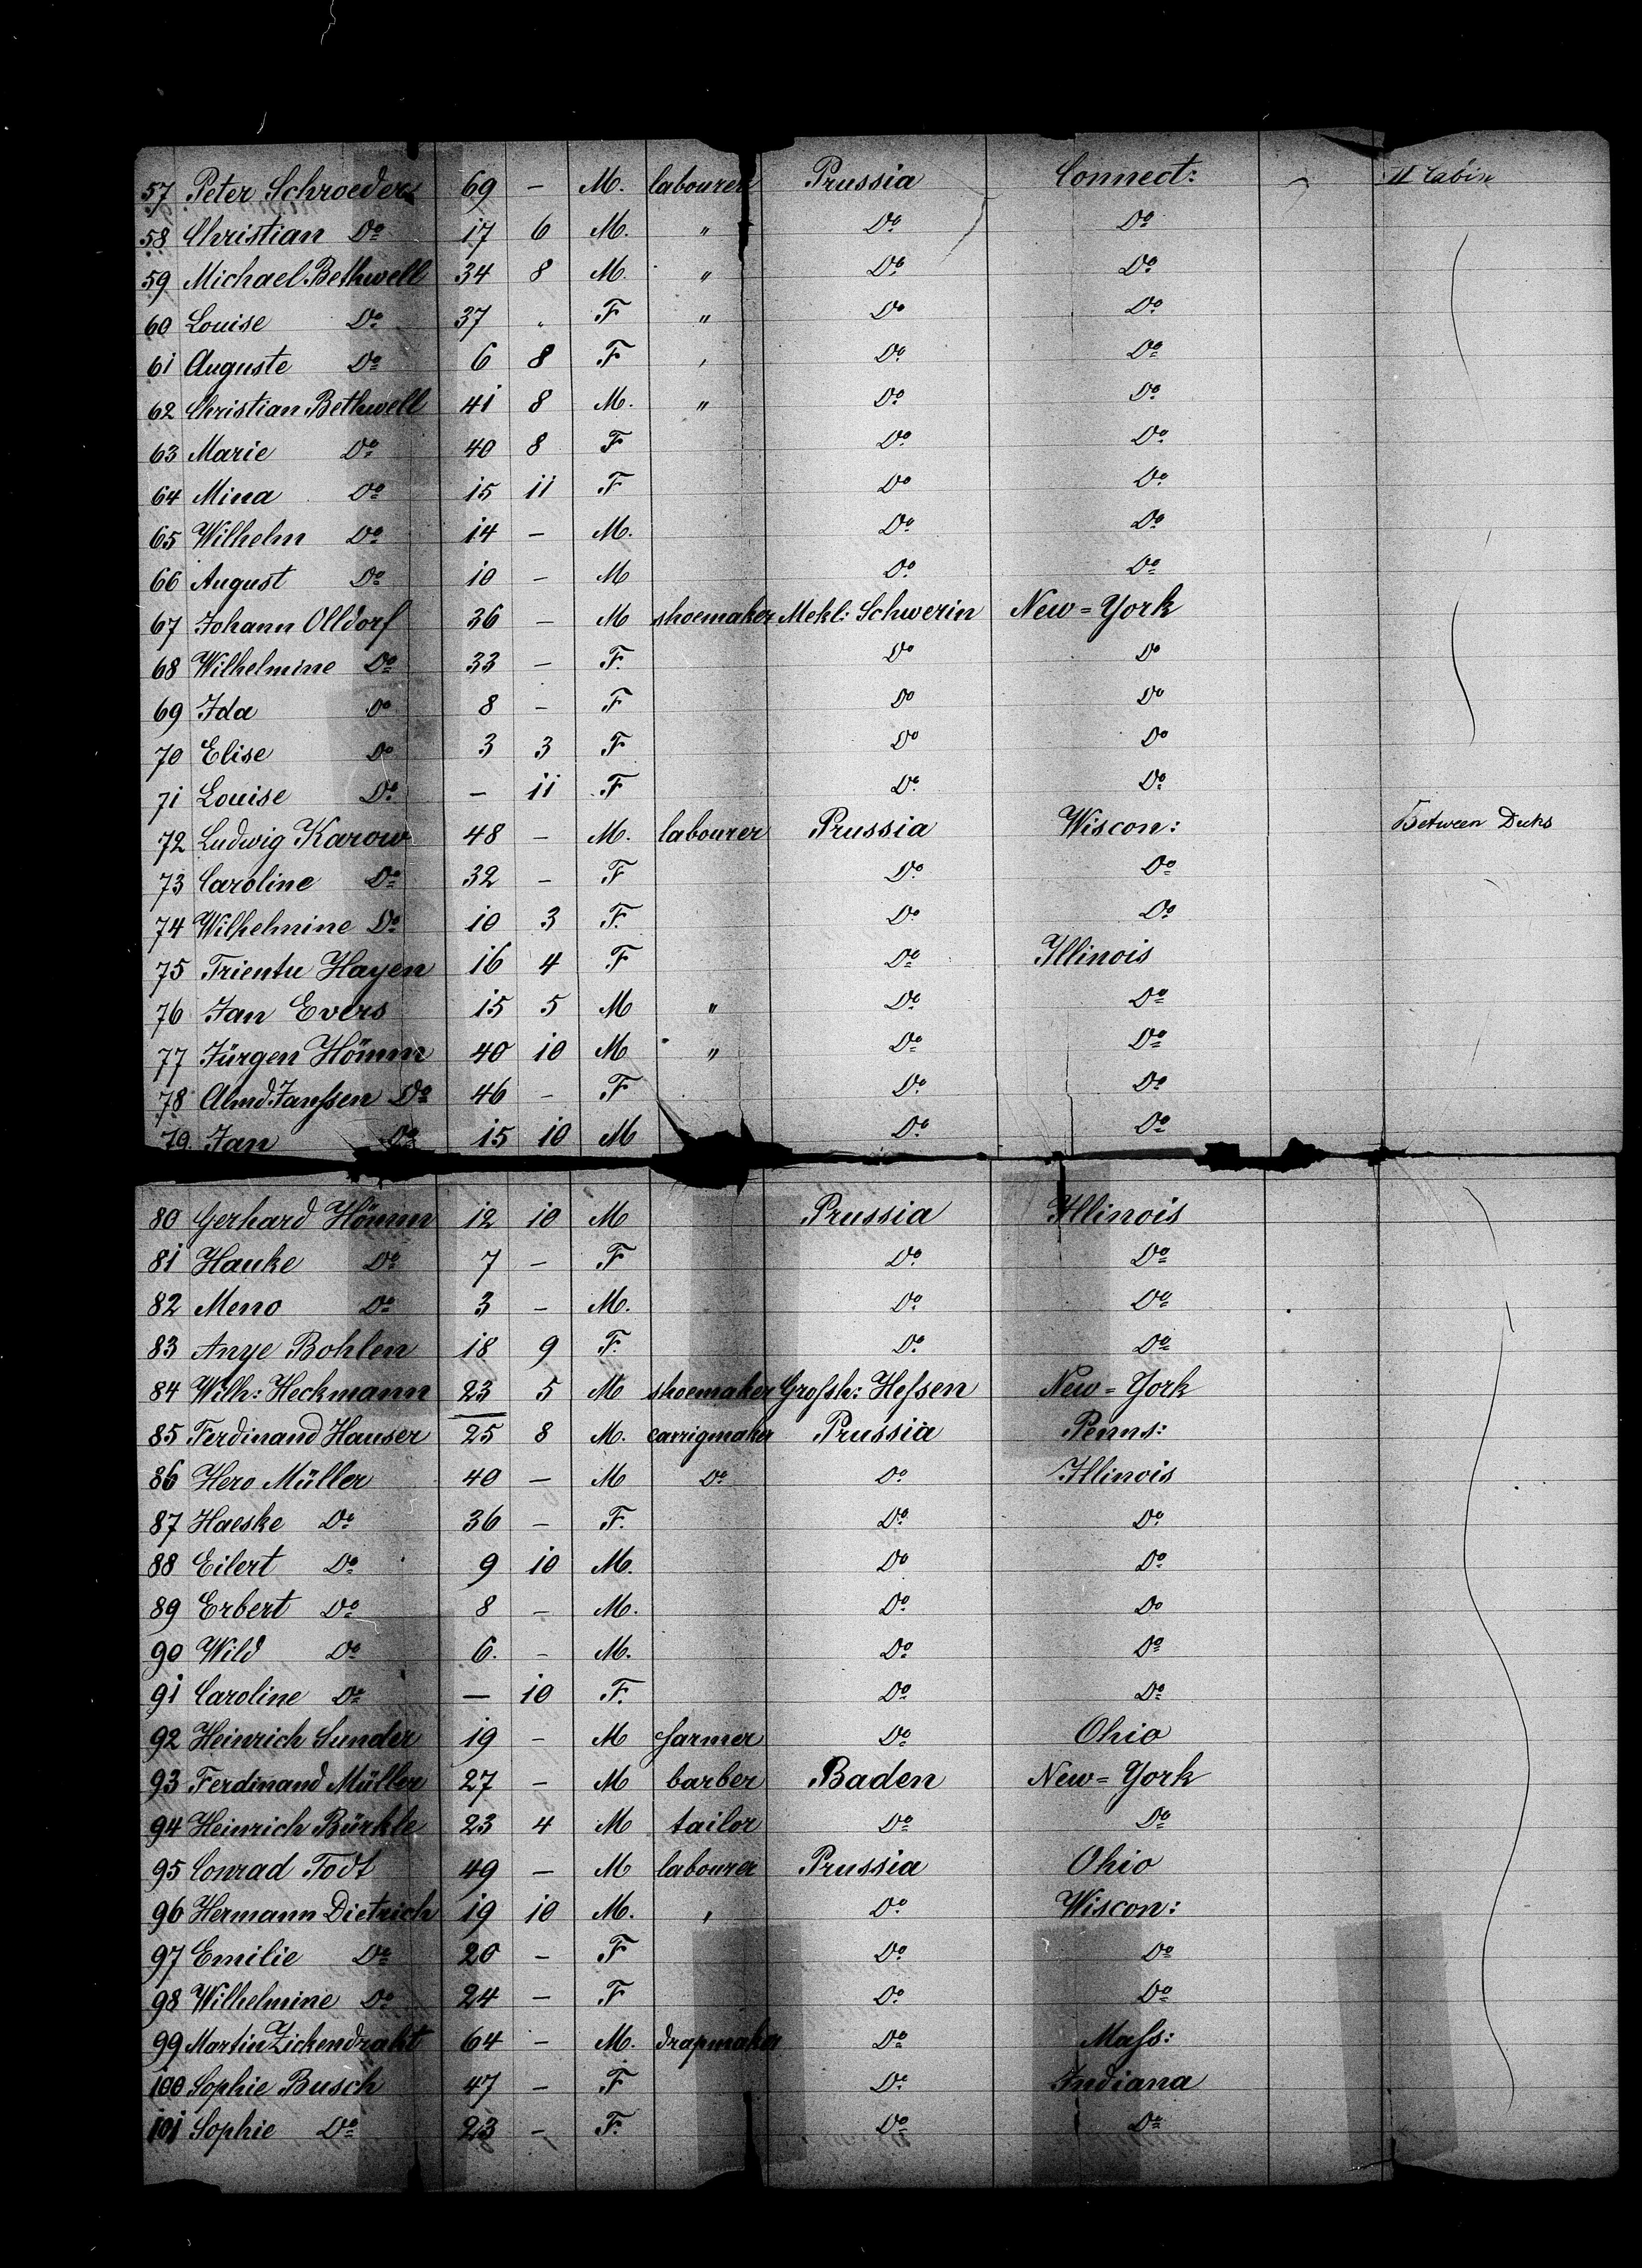 57 Peter Schroeder 69 – M. labourer Prussia Connect: II Cabin
58 Christian Do 17 6 M. " Do Do
59 Michael Bethwell 34 8 M. " Do Do
60 Louise Do 37 " F " Do Do
61 Auguste Do 6 8 F " Do Do
62 Christian Bethwell 41 8 M. " Do Do
63 Marie Do 40 8 F Do Do
64 Mina Do 15 11 F Do Do
65 Wilhelm Do 14 – M. Do Do
66 August Do 10 – M Do Do
67 Johann Olldorf 36 – M shoemaker Mekl: Schwerin New=York
68 Wilhelmine Do 33 – F. Do Do
69 Ida Do 8 – F Do Do
70 Elise Do 3 3 F Do Do
71 Louise Do – 11 F Do Do
72 Ludwig Karow 48 – M. labourer Prussia Wiscon: Between Decks
73 Caroline Do 32 – F Do Do
74 Wilhelmine Do 10 3 F. Do Do
75 Trientu Hayen 16 4 F Do Illinois
76 Jan Evers 15 5 M " Do Do
77 Jürgen Hömm 40 10 M " Do Do
78 Almd. Janssen Do 46 – F Do Do
79 Jan Do 15 10 M Do Do
80 Gerhard Hömm 12 10 M Prussia Illinois
81 Hauke Do 7 – F Do Do
82 Meno Do 3 – M. Do Do
83 Anye Bohlen 18 9 F. Do Do
84 Wilh: Heckmann 23 5 M shoemaker Grossh: Hessen New=York
85 Ferdinand Hauser 25 8 M. carrigmaker Prussia Penns:
86 Hero Müller 40 – M Do Do Illinois
87 Haeske Do 36 – F. Do Do
88 Eilert Do 9 10 M. Do Do
89 Erbert Do 8 – M. Do Do
90 Wild Do 6. – M. Do Do
91 Caroline Do – 10 F. Do Do
92 Heinrich Sunder 19 – M farmer Do Ohio
93 Ferdinand Müller 27 – M barber Baden New=York
94 Heinrich Bürkle 23 4 M tailor Do Do
95 Conrad Todt 49 – M labourer Prussia Ohio
96 Hermann Dietrich 19 10 M. " Do Wiscon:
97 Emilie Do 20 – F Do Do
98 Wilhelmine Do 24 – F Do Do
99 Martin Zickendraht 64 – M. drapmaker Do Mass:
100 Sophie Busch 47 – F Do Indiana
101 Sophie Do 23 – F. Do Do